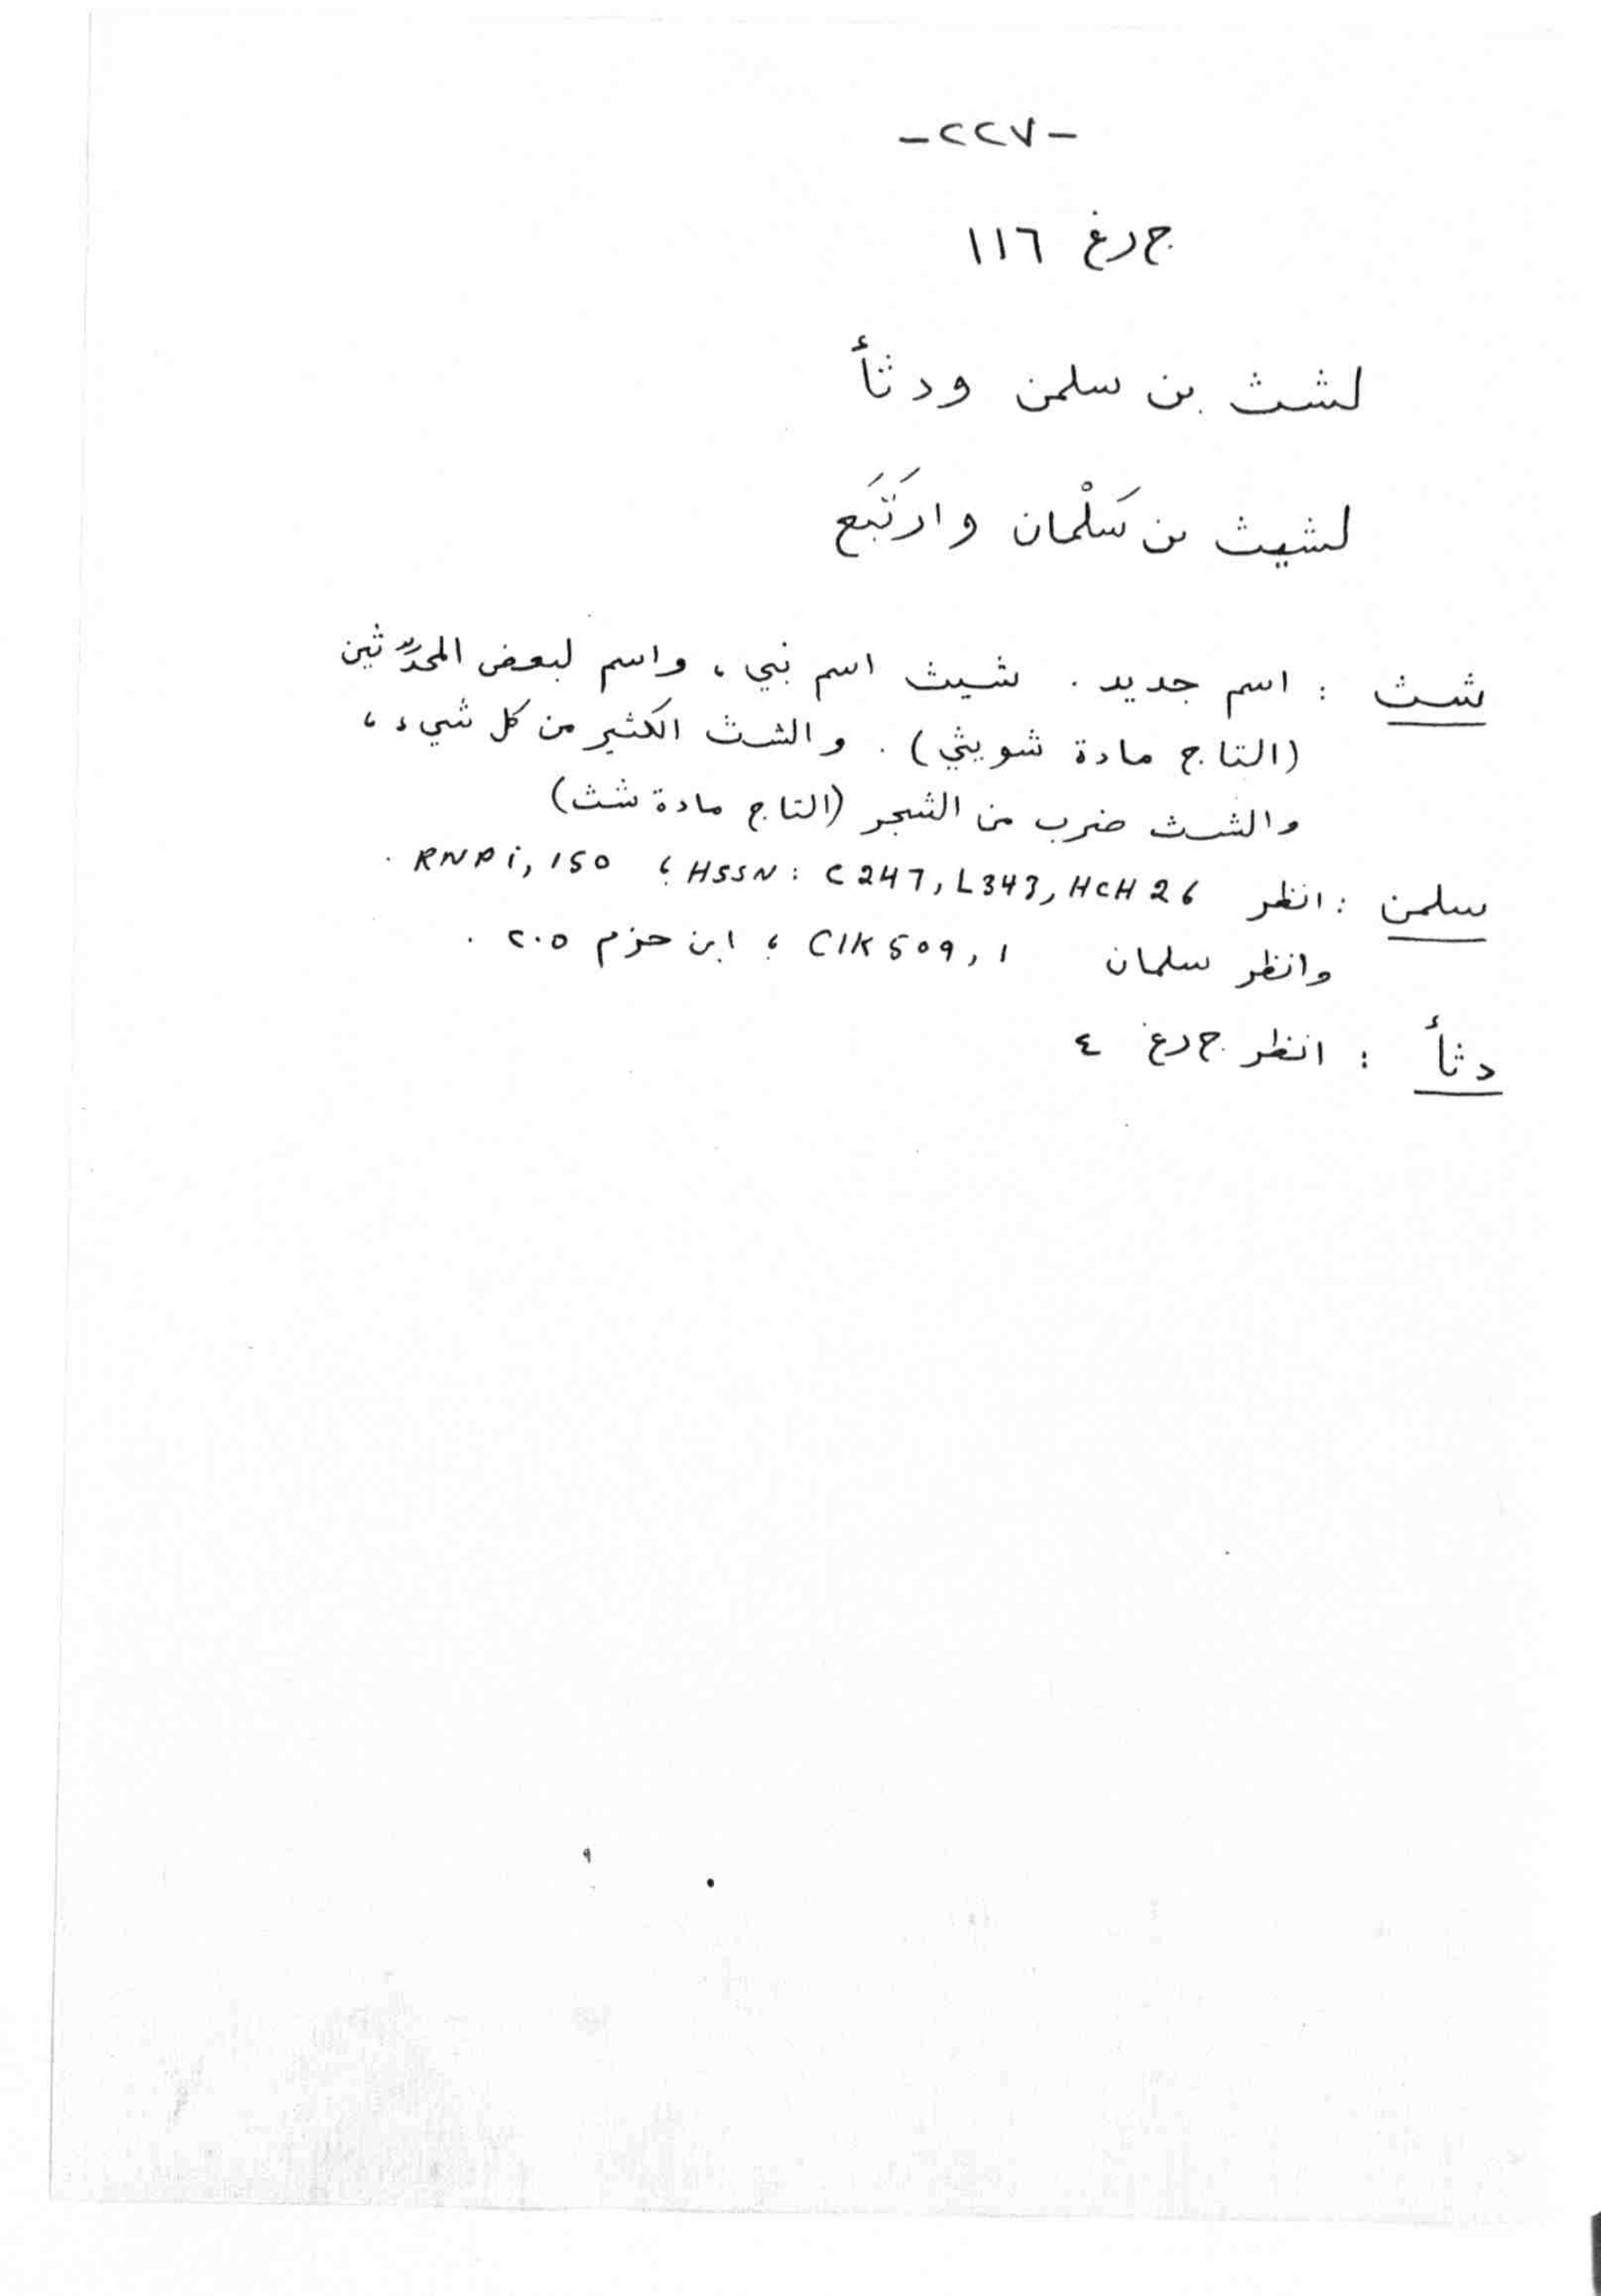 -٢٢٧-
ج رغ ١١٦
لشث بن سلمن ودثأ
لشيث بن سَلْمان وارَتَّبَع
شث : اسم جديد . شيث اسم نبي ، واسم لبعض المحدِّثين
(التاج مادة شويثي) . والشث الكثير من كل شيء ،
والشث ضرب من الشجر (التاج مادة شث)
سلمن : انظر HSSN : C 247, L343, HCH 26 ؛ RNP i, 150 .
وانظر سلمان CIK 509, 1 ؛ ابن حزم ٢٠٥ .
دثأ : انظر ج رغ ٤